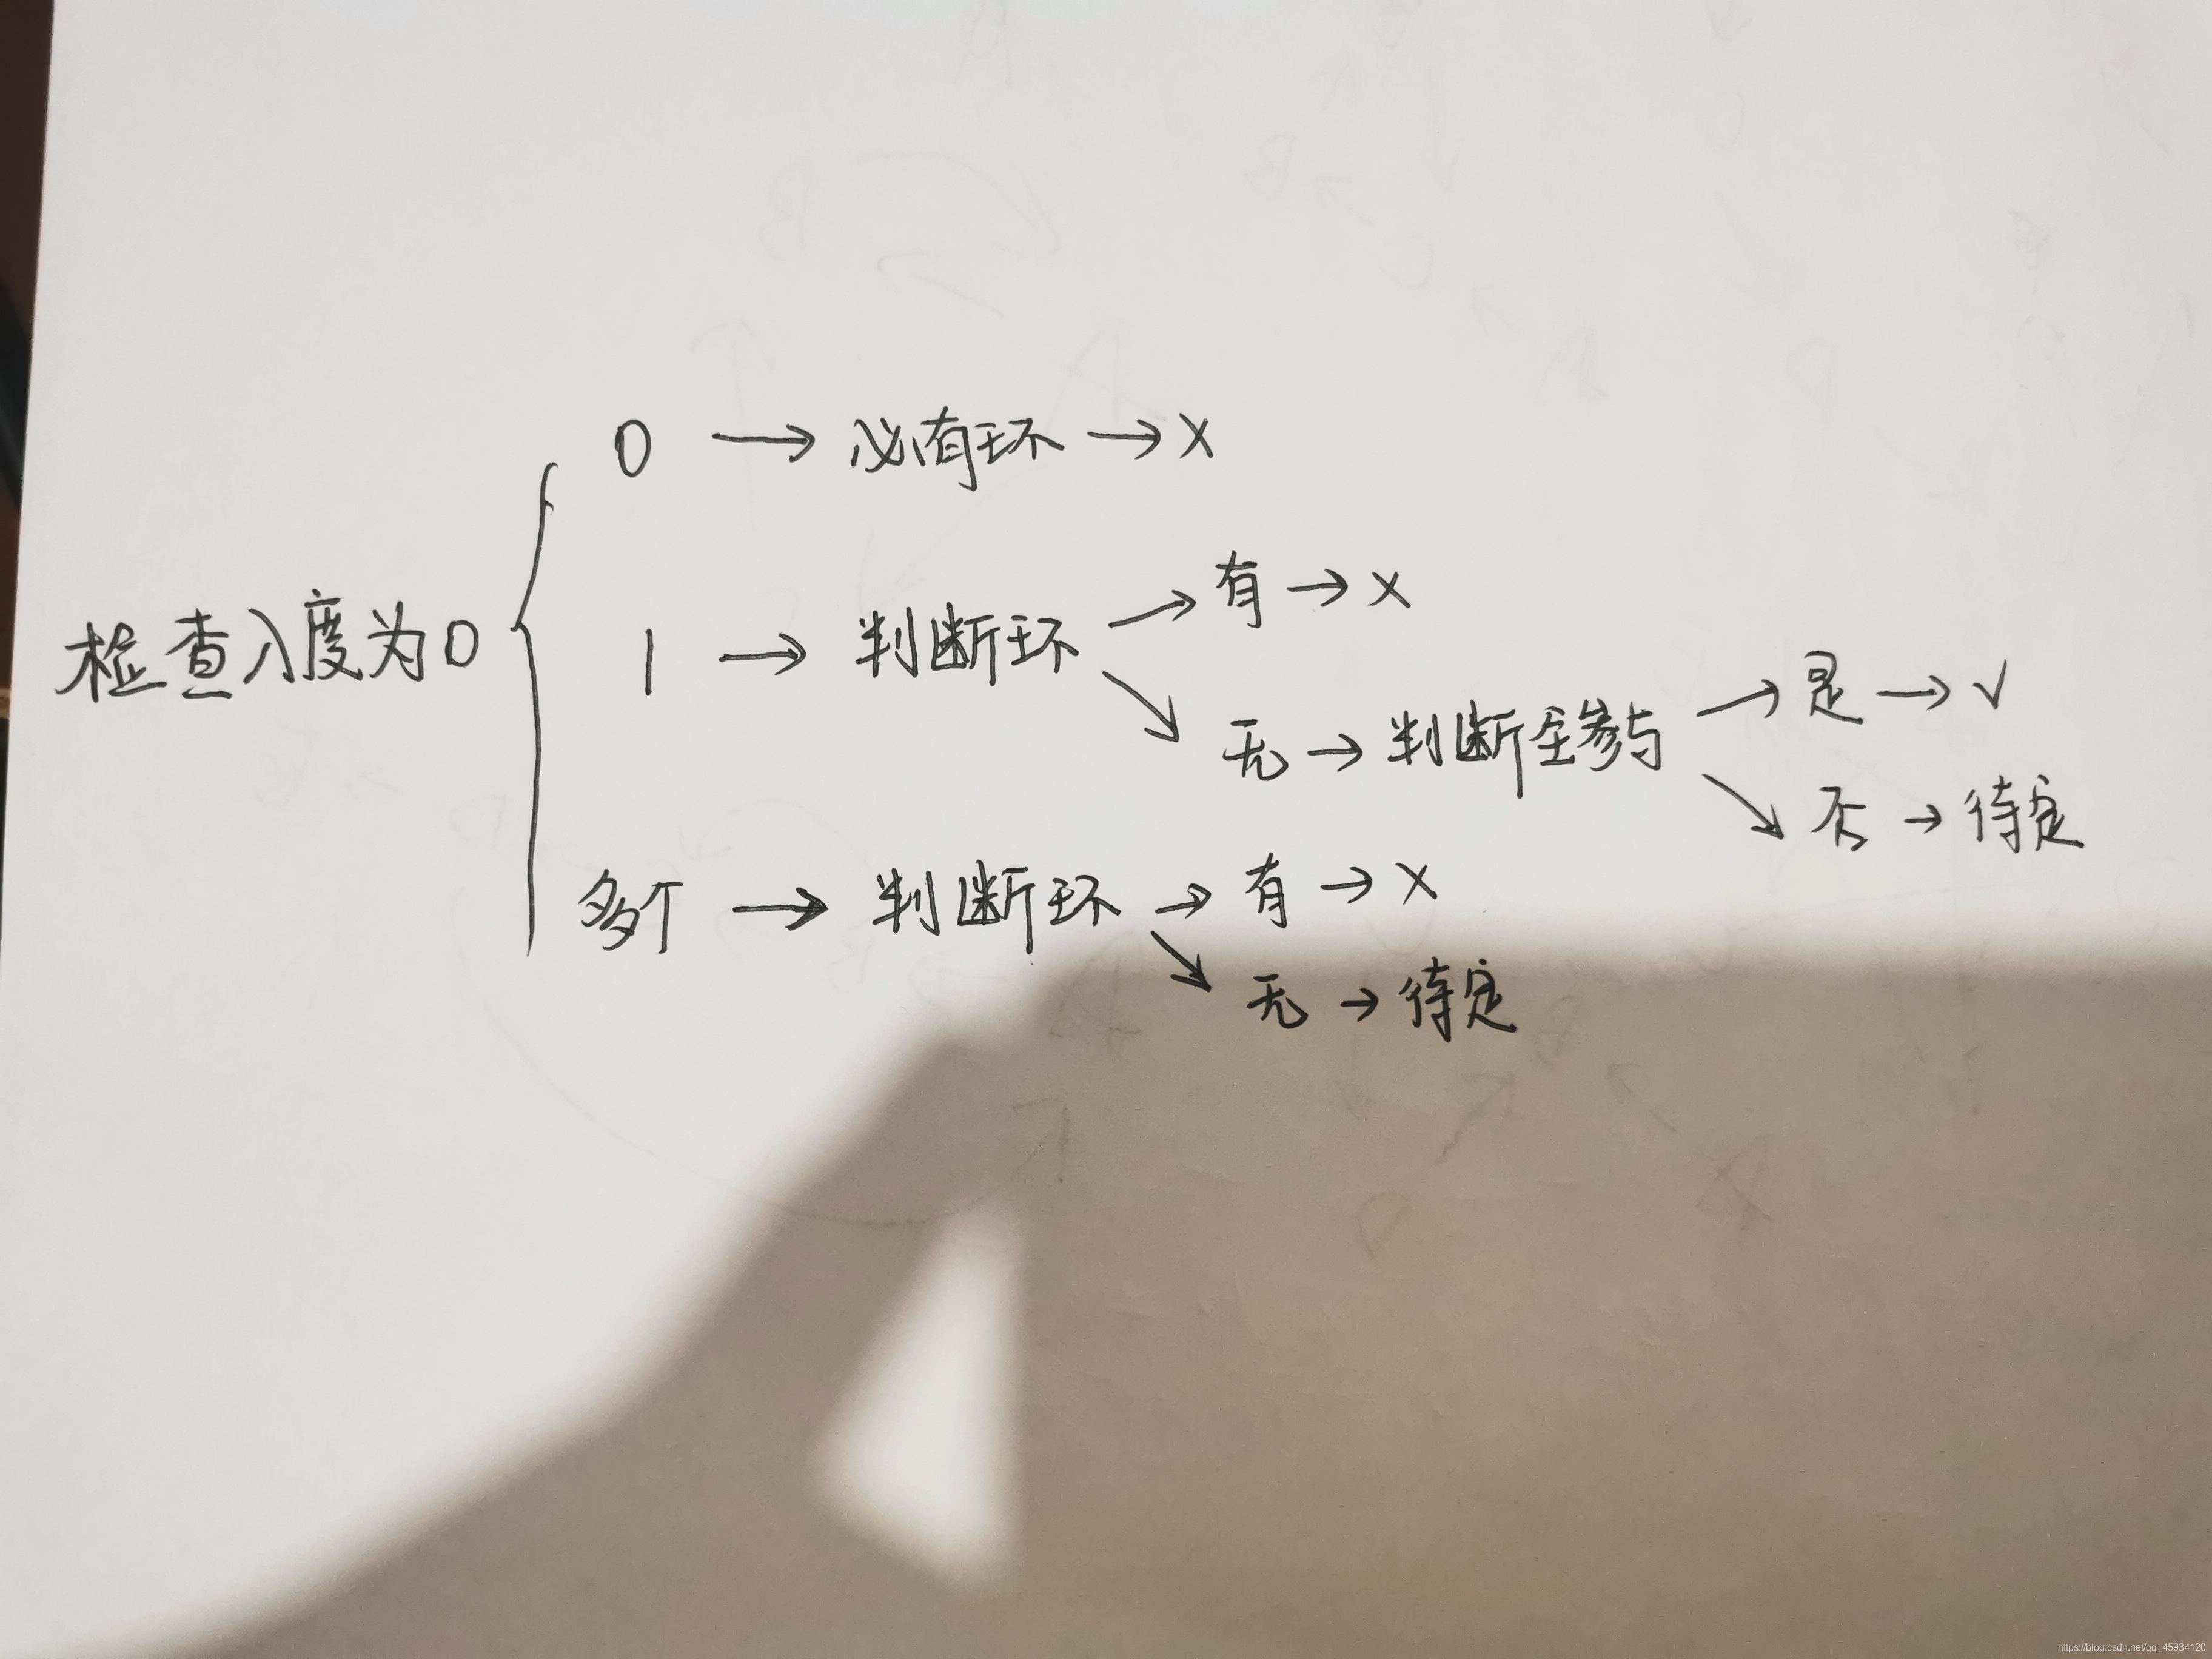 0 → 必有环 → X
有 → X
检查入度为0 { 1 → 判断环
是 → √
无 → 判断全参与
否 → 待定
多个 → 判断环 → 有 → X
无 → 待定
https://blog.csdn.net/qq_45934120